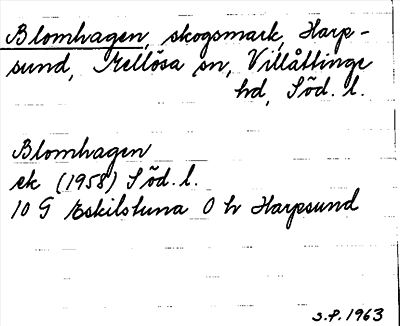 Blomhagen, skogsmark, Harp-
sund, Mellösa sn, Villåttinge
hd, Söd. l.
Blomhagen
ek (1958) Söd. l.
10 G Eskilstuna 0 h Harpsund
S.P. 1963